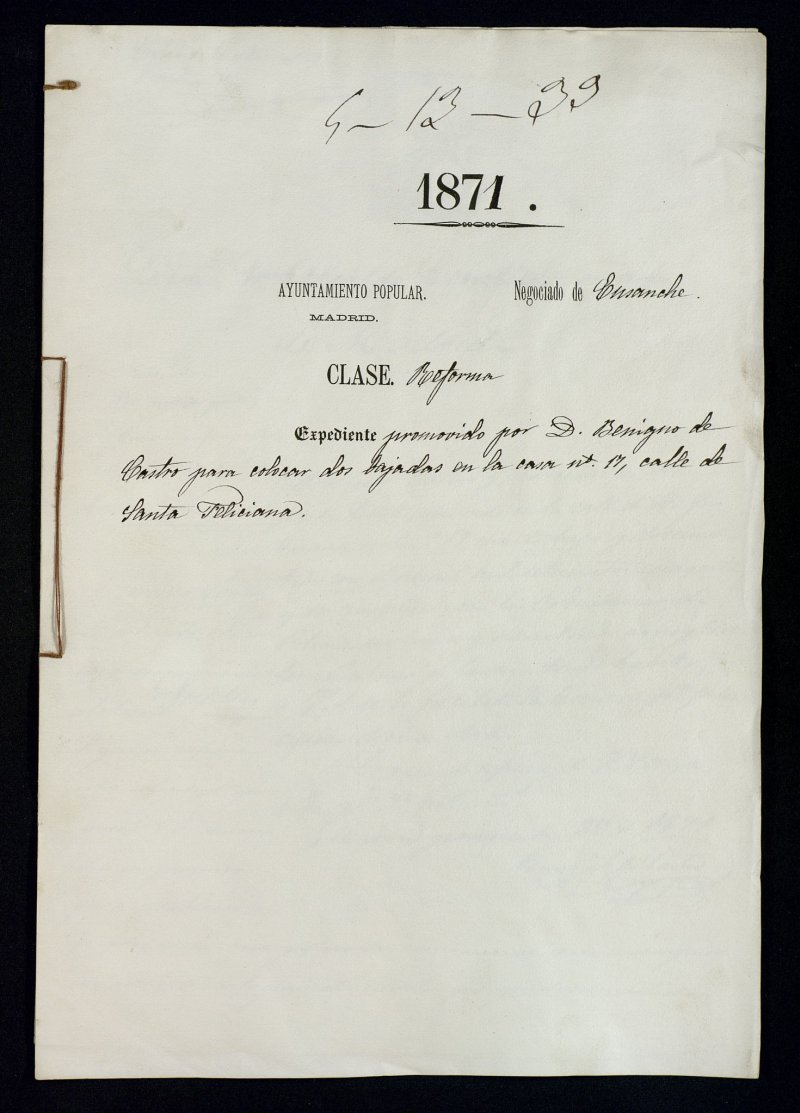 5-13-39
1871.
AYUNTAMIENTO POPULAR. Negociado de Ensanche.
MADRID.
CLASE. Reforma
Expediente promovido por D. Benigno de
Castro para colocar dos bajadas en la casa nº. 17, calle de
Santa Feliciana.